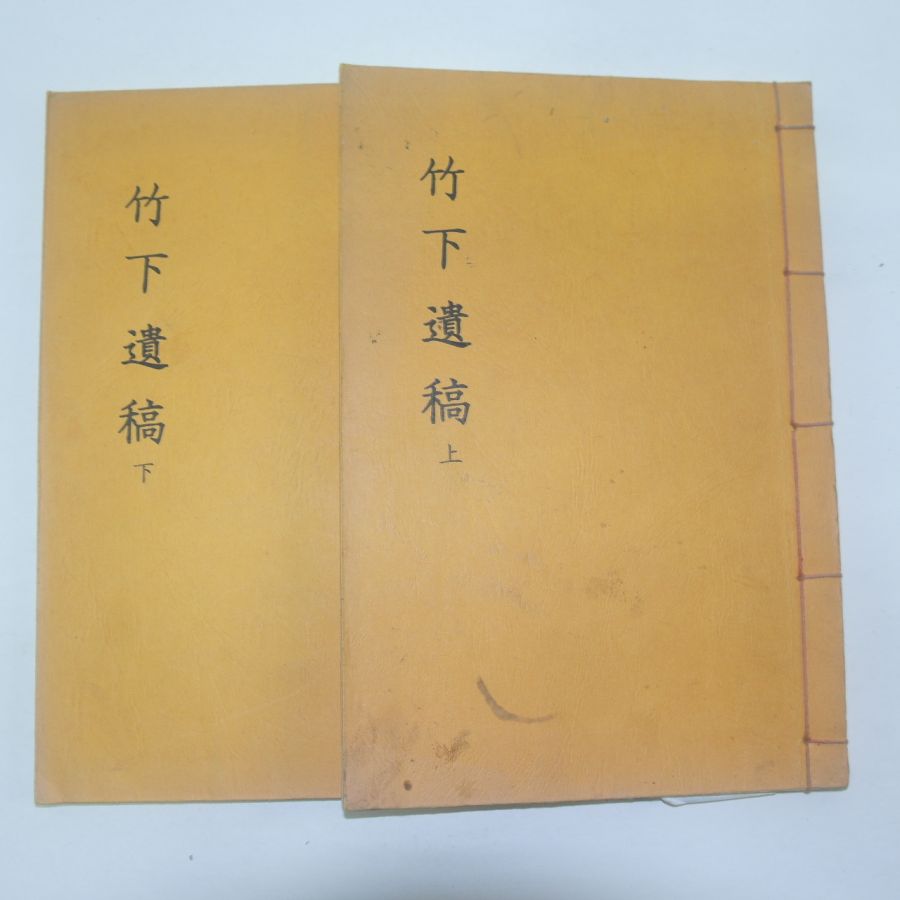 竹下遺稿
上
竹下遺稿
下